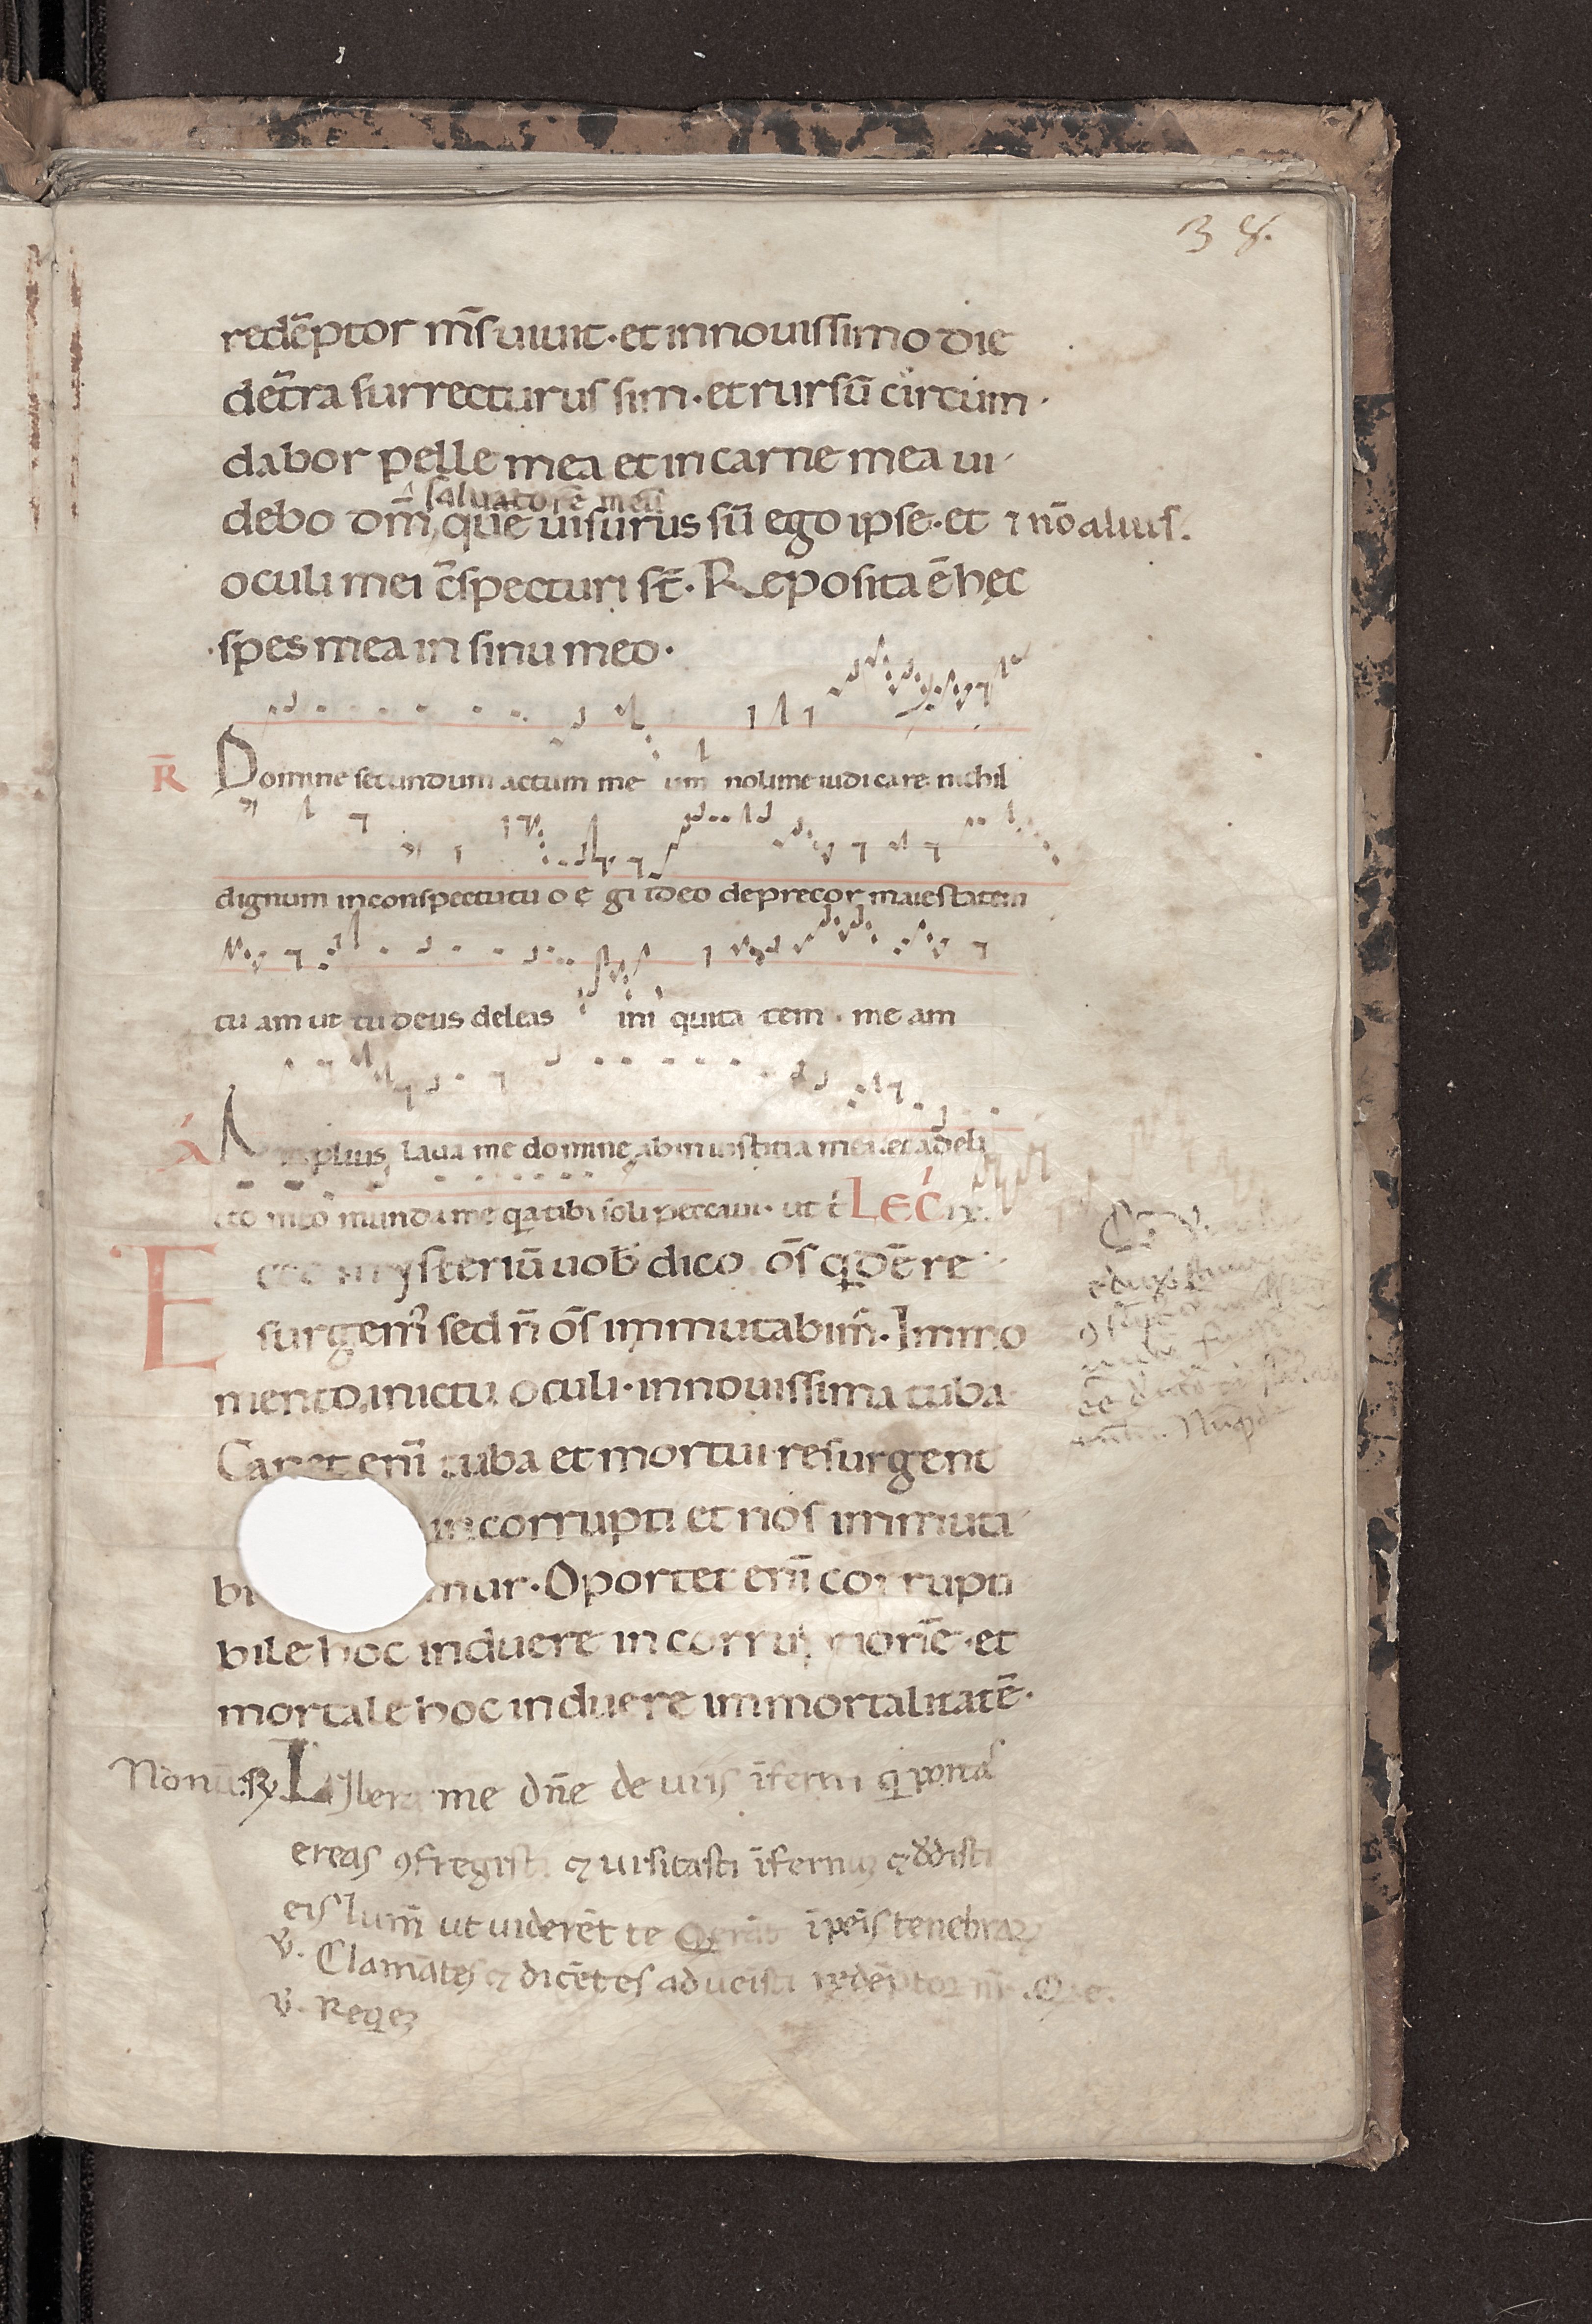 38.
redēptor m̄s uiuit· et in nouissimo die
de t̄ra surrecturus sim· et rursū circum
dabor pelle mea et in carne mea ui
saluatorē meū
debo dm̄ quē uisurus sū ego ipse· et ⁊ nō alius.
oculi mei c̄specturi st̄· Reposita ē hęc
spes mea in sinu meo·
R̄ Domine secundum actum me um noli me iudicare nichil
dignum in conspectu tu o e gi ideo deprecor maiestatem
tu am ut tu deus deleas ini quita tem me am
Amplius laua me domine ab iniustitia mea et a deli
cto meo munda me q̄a tibi soli peccaui· ut t̄ LEĆ ix.
Ecce mysteriū uob̄ dico os̄ qidē re
surgem᷒ sed n̄ os̄ immutabim᷒· In mo
mento, in ictu oculi· in nouissima tuba
Canet enī tuba et mortui resurgent
in corrupti et nos immuta
bi mur· Oportet enī corrupti
bile hoc induere in corruptionē· et
mortale hoc induere immortalitatē·
Nonū. ℞ Libera me dn̄e de uiis īferni qi portas
ereas ꝯfregisti ⁊ uisitasti īfernū ⁊ dedisti
eis lum̄ ut uiderēt te Q erāt ī peīs tenebraꝝ
V̄. Clamātes ⁊ dicētes aduēisti redēptor nr̄. Q e.
V̄. Reqiē